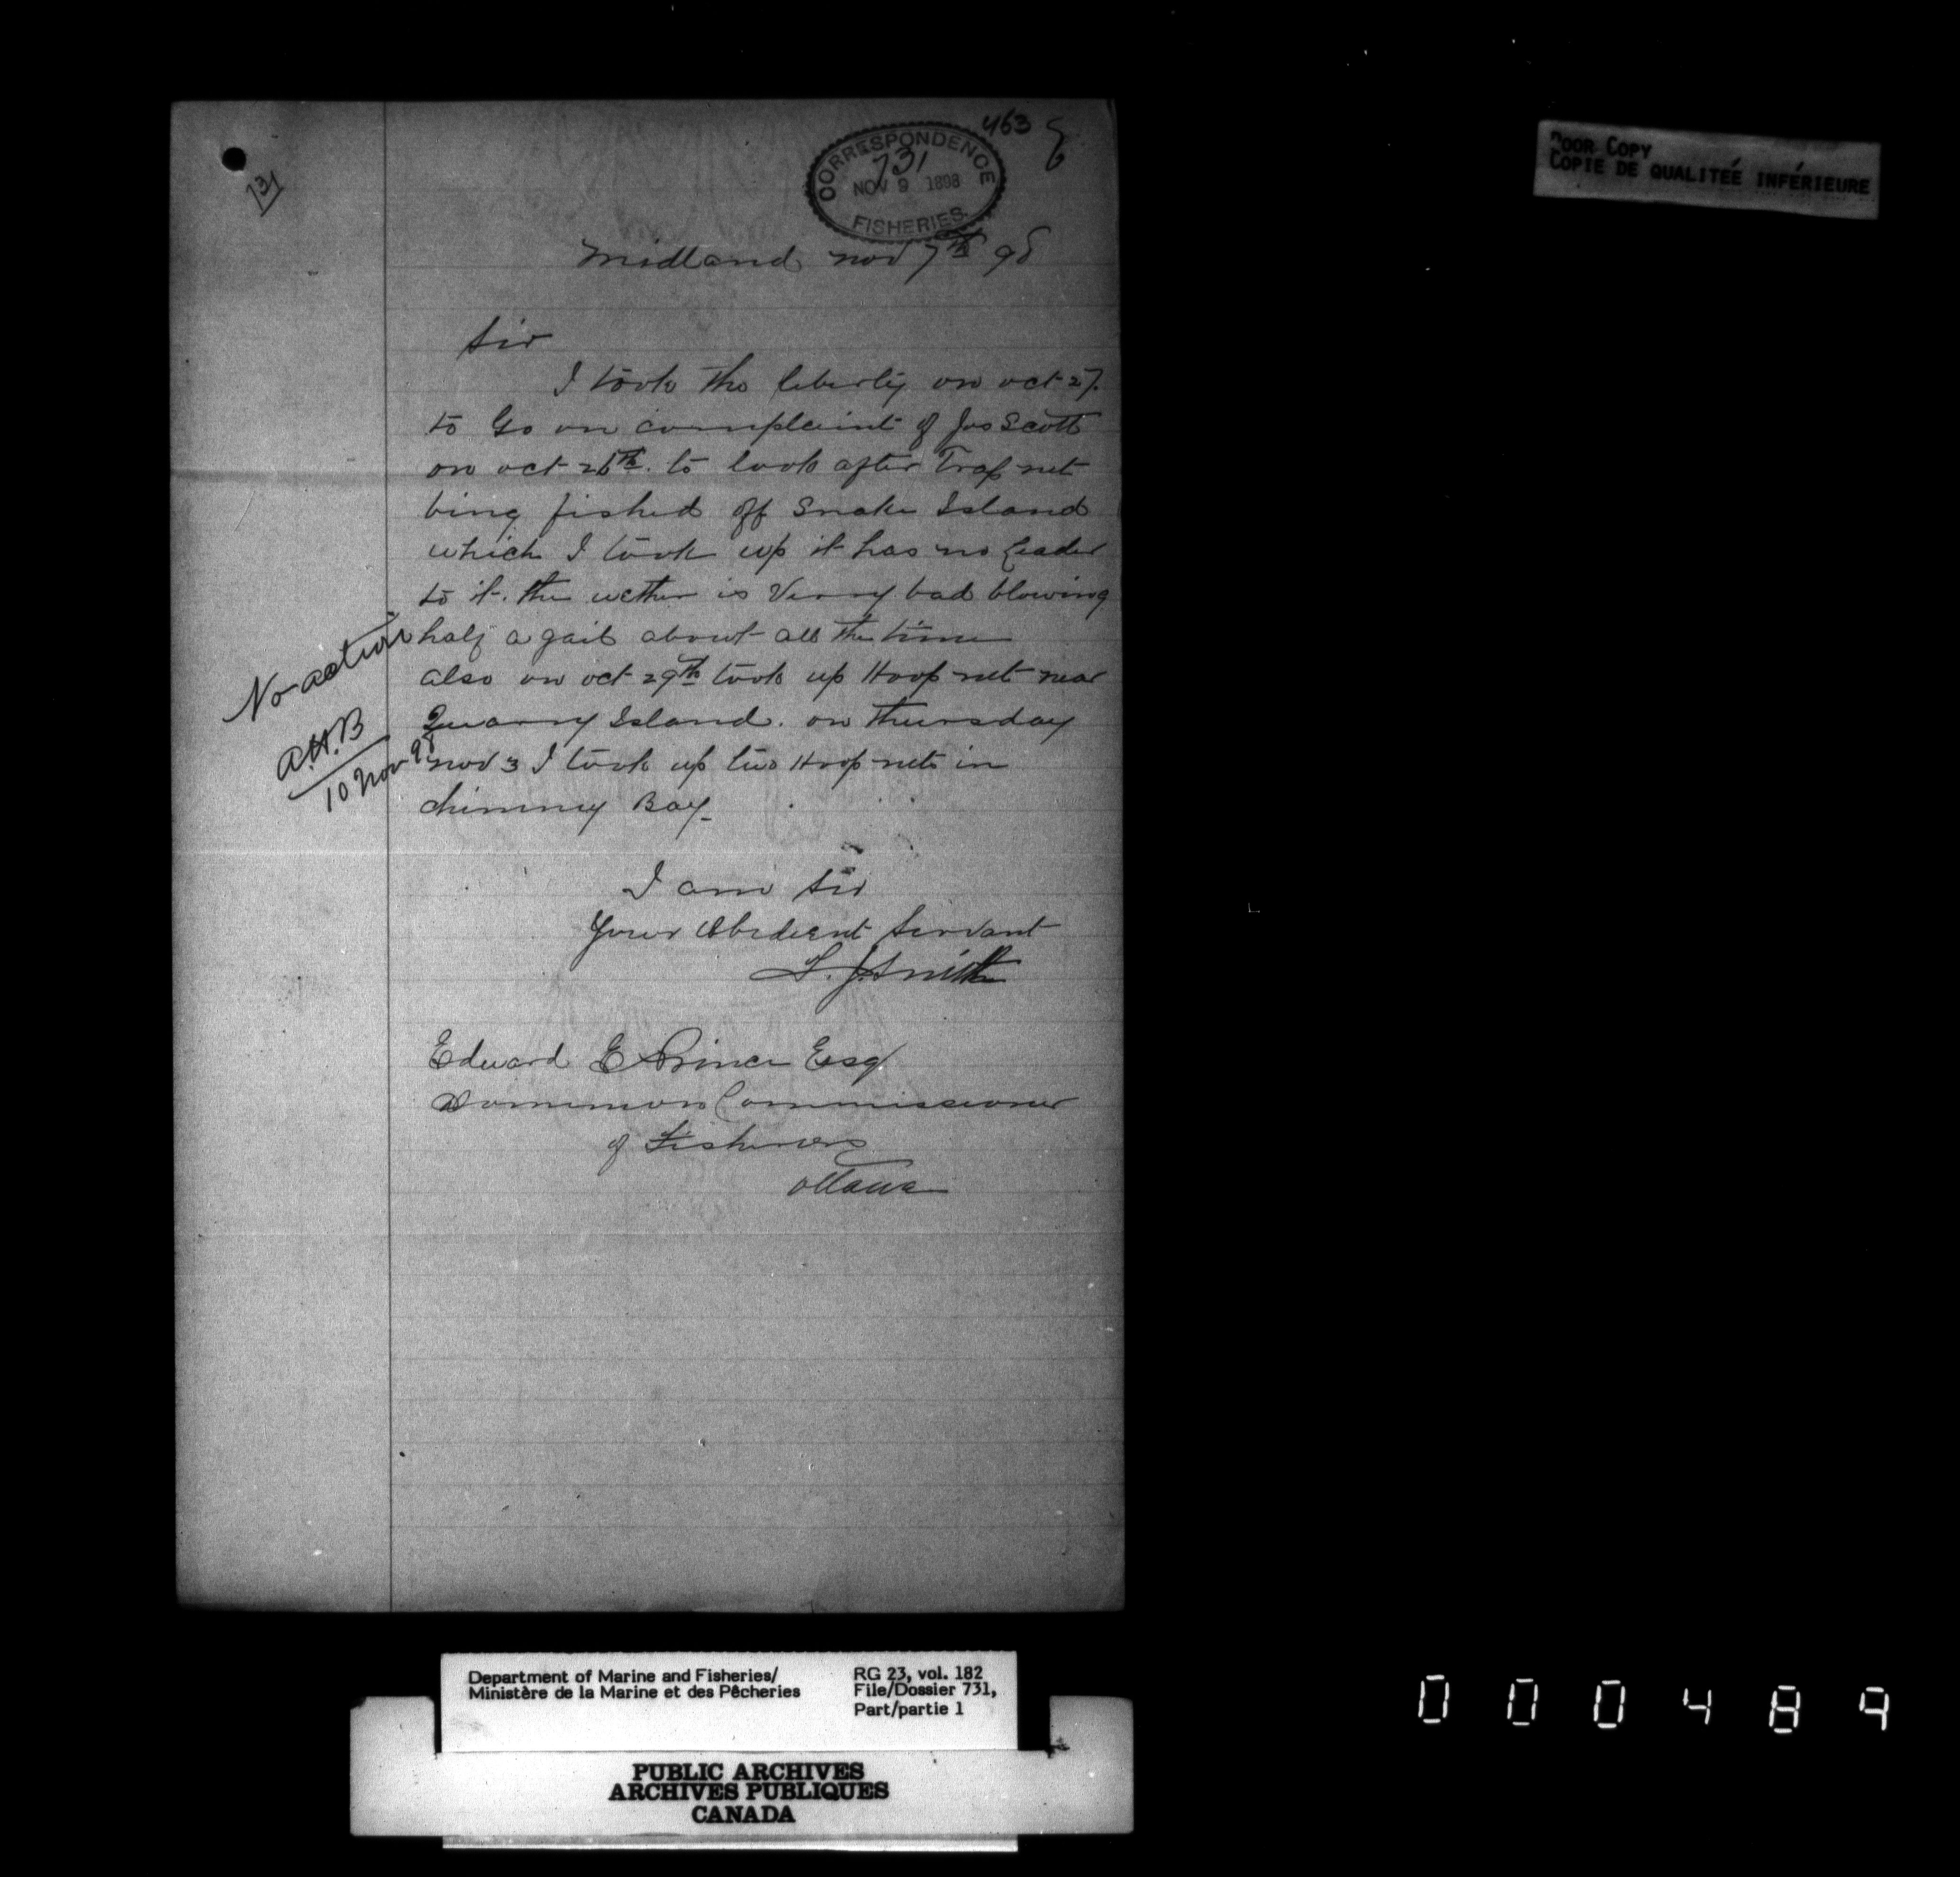 463
731
CORRESPONDENCE
731
NOV 9 1898
FISHERIES.
Midland nov 7th 98
Sir
I took the liberty on oct 27.
to Go on complaint of Jos Scott
on oct 26th. to look after Trap net
bing fished off Snake Island
which I took up it has no leader
to it. the wether is Verry bad blowing
half a gail about all the time
also on oct 29th took up Hoop net near
Quarry Island. on thursday
nov 3 I took up two Hoop nets in
chimney Bay.
No action
A.H.B
10 Nov 98
I am Sir
Your Obedient Servant
L. J. Smith
Edward E Prince Esq
Dominion Commissioner
of Fisheries
ottawa
POOR COPY
COPIE DE QUALITEÉ INFÉRIEURE
Department of Marine and Fisheries/
Ministère de la Marine et des Pêcheries
RG 23, vol. 182
File/Dossier 731,
Part/partie 1
PUBLIC ARCHIVES
ARCHIVES PUBLIQUES
CANADA
000489